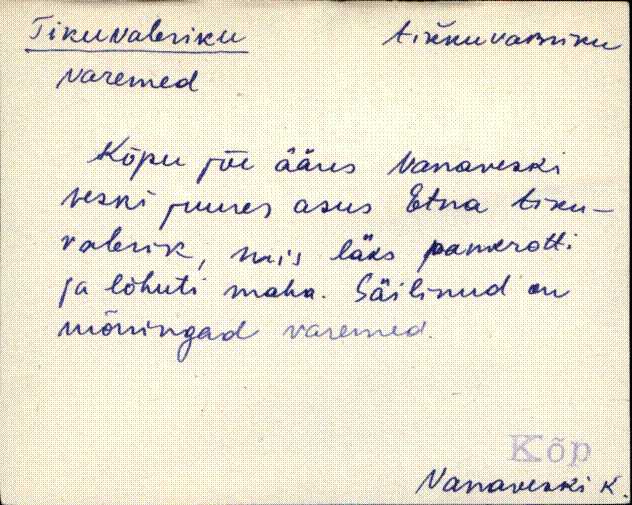 Tikuvabriku tikkuvaBriku
varemed
Kõpu jõe ääres Vanaveski
veski juures asus Etna tiku-
vabrik, mis läks pankrotti
ja lõhuti maha. Säilinud on
mõningad varemed.
Kõp
Vanaveski K.